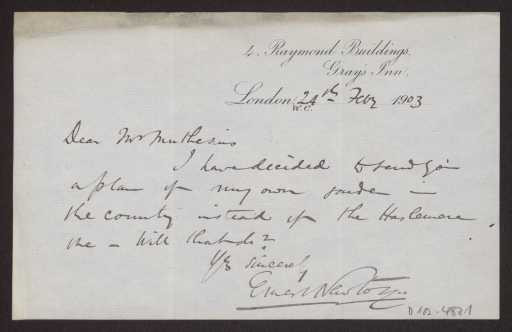 4, Raymond Buildings,
Gray's Inn,
London, 24th Feby 1903
W.C.
Dear Mr Muthesius
I have decided to send you
a plan of my own garden in
the country instead of the Haslemere
one – Will that do?
Yrs sincerely
Ernest Newton
D 102-4801